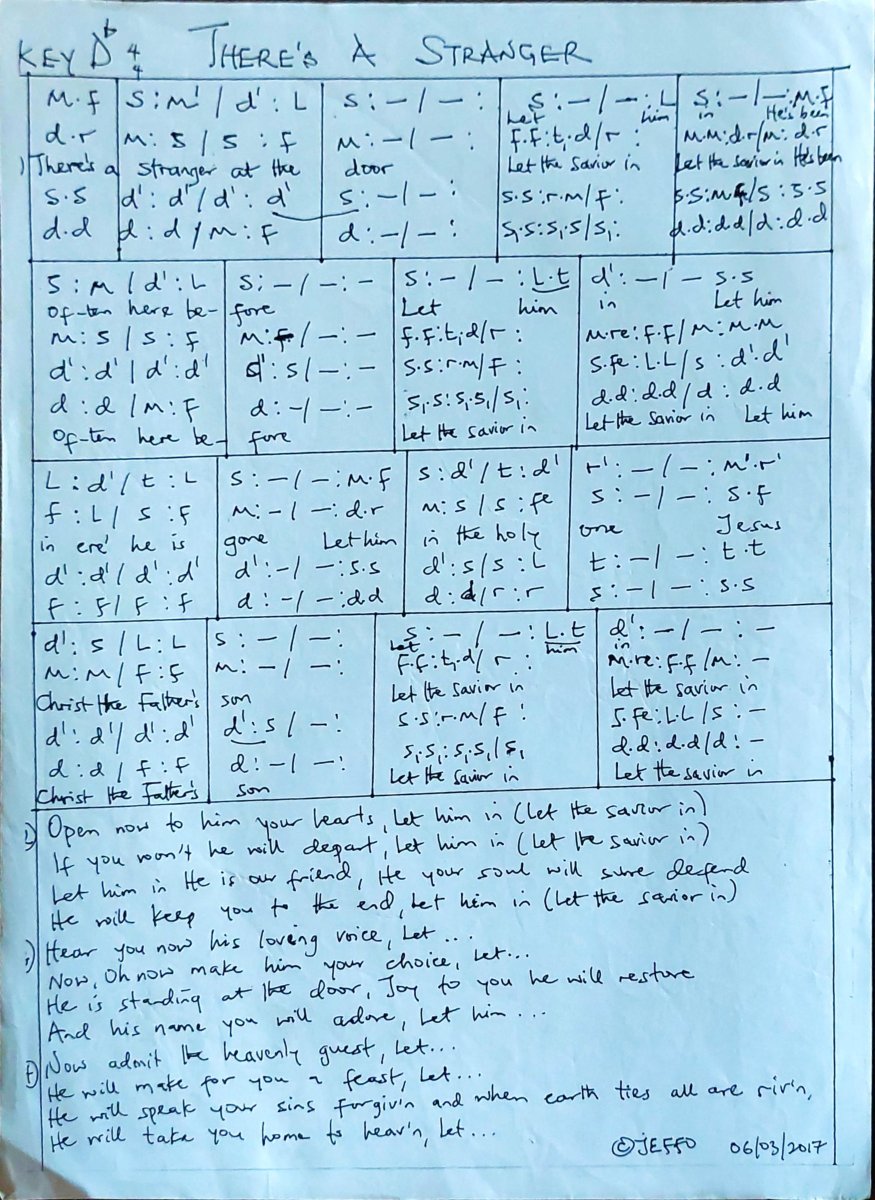 KEY Db 4/4 THERE'S A STRANGER
M.f | S:M'/d':L | S:-/-: | S:-/-:L | S:-/-:M.f
Let him | in He's been
d.r | M:S/S:f | M:-/-: | f.f:t,d/r: | M.M:d.r/M:d.r
1) There's a | stranger at the | door | Let the Savior in | Let the Savior in He's been
S.S | d':d'/d':d' | S:-/-: | S.S:r.M/f: | S.S:Mf/S:S.S
d.d | d:d/M:f | d:-/-: | S,S:S,S/S,: | d.d:d.d/d:d.d
S:M/d':L | S:-/-:- | S:-/-:L.t | d':-/- S.S
Of-ten here be- | fore | Let him | in Let him
M:S/S:f | M:f/-:- | f.f:t,d/r: | M.re:f.f/M:M.M
d':d'/d':d' | d':S/-:- | S.S:r.M/f: | S.fe:L.L/S:d'.d'
d:d/M:f | d:-/-:- | S,S:S,S,/S,: | d.d:d.d/d:d.d
Of-ten here be- | fore | Let the Savior in | Let the Savior in Let him
L:d'/t:L | S:-/-:M.f | S:d'/t:d' | r':-/-:M'.r'
f:L/S:f | M:-/-:d.r | M:S/S:fe | S:-/-:S.f
in ere' he is | gone Let him | in the holy | one Jesus
d':d'/d':d' | d':-/-:S.S | d':S/S:L | t:-/-:t.t
f:f/f:f | d:-/-:d.d | d:d/r:r | S:-/-:S.S
d':S/L:L | S:-/-: | S:-/-:L.t | d':-/-:-
Let him | in
M:M/f:f | M:-/-: | f.f:t,.d/r: | M.re:f.f/M:-
Christ the Father's | son | Let the Savior in | let the savior in
d':d'/d':d' | d':S/-: | S.S:r.M/f: | S.fe:L.L/S:-
d:d/f:f | d:-/-: | S,S,:S,S,/S, | d.d:d.d/d:-
Christ the Father's | son | Let the Savior in | Let the savior in
Open now to him your hearts, Let him in (Let the savior in)
If you won't he will depart, Let him in (Let the savior in)
Let him in He is our friend, He your soul will sure defend
He will keep you to the end, Let him in (Let the savior in)
Hear you now his loving voice, Let...
Now, Oh now make him your choice, Let...
He is standing at the door, Joy to you he will restore
And his name you will adore, Let him...
Now admit the heavenly guest, Let...
He will make for you a feast, Let...
He will speak your sins forgiv'n and when earth ties all are riv'n,
He will take you home to heav'n, Let...
©JEFFO 06/03/2017